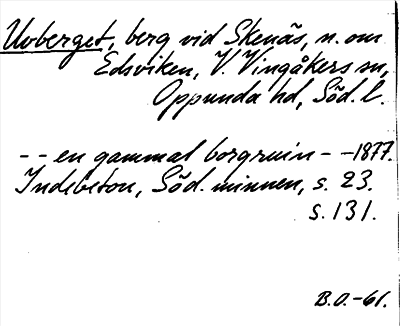 Uvberget, berg vid Skenäs, n. om
Edsviken, V. Vingåkers sn,
Oppunda hd, Söd. l.
-- en gammal borgruin -- 1877.
Indebetou, Söd. minnen, s. 23.
s. 131.
B.O.-61.